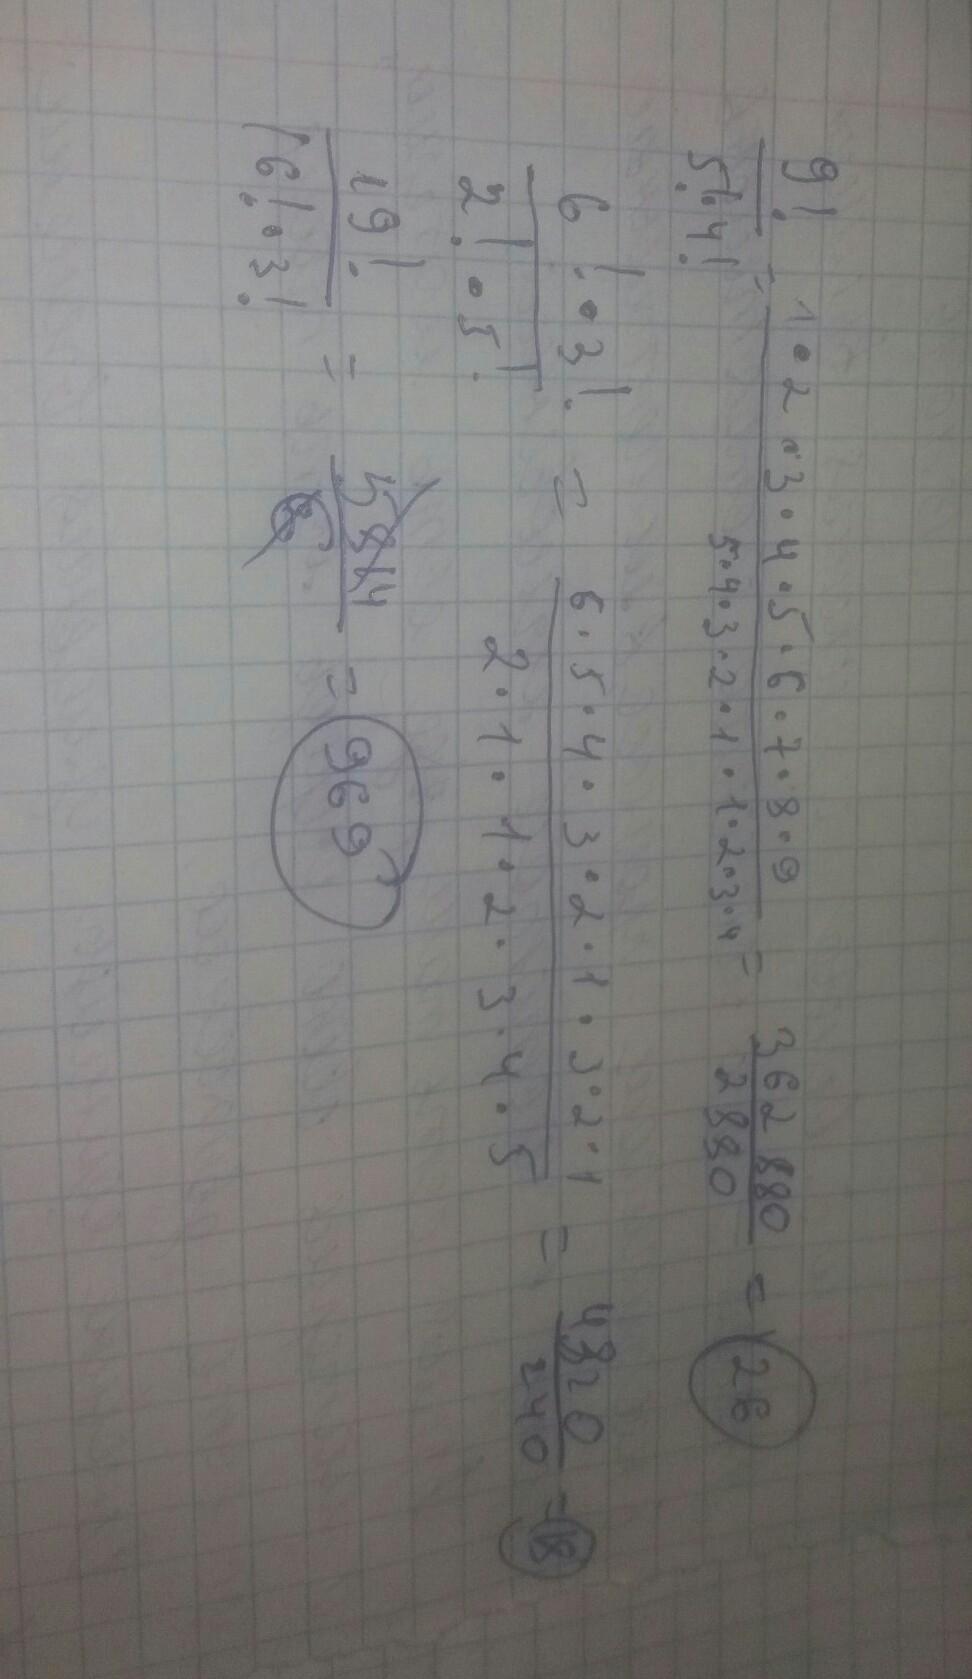 9! / 5!·4! = 1·2·3·4·5·6·7·8·9 / 5·4·3·2·1·1·2·3·4 = 362 880 / 2880 = 126
6!·3! / 2!·5! = 6·5·4·3·2·1·3·2·1 / 2·1·1·2·3·4·5 = 4320 / 240 = 18
19! / 16!·3! = 5814 / 6 = 969